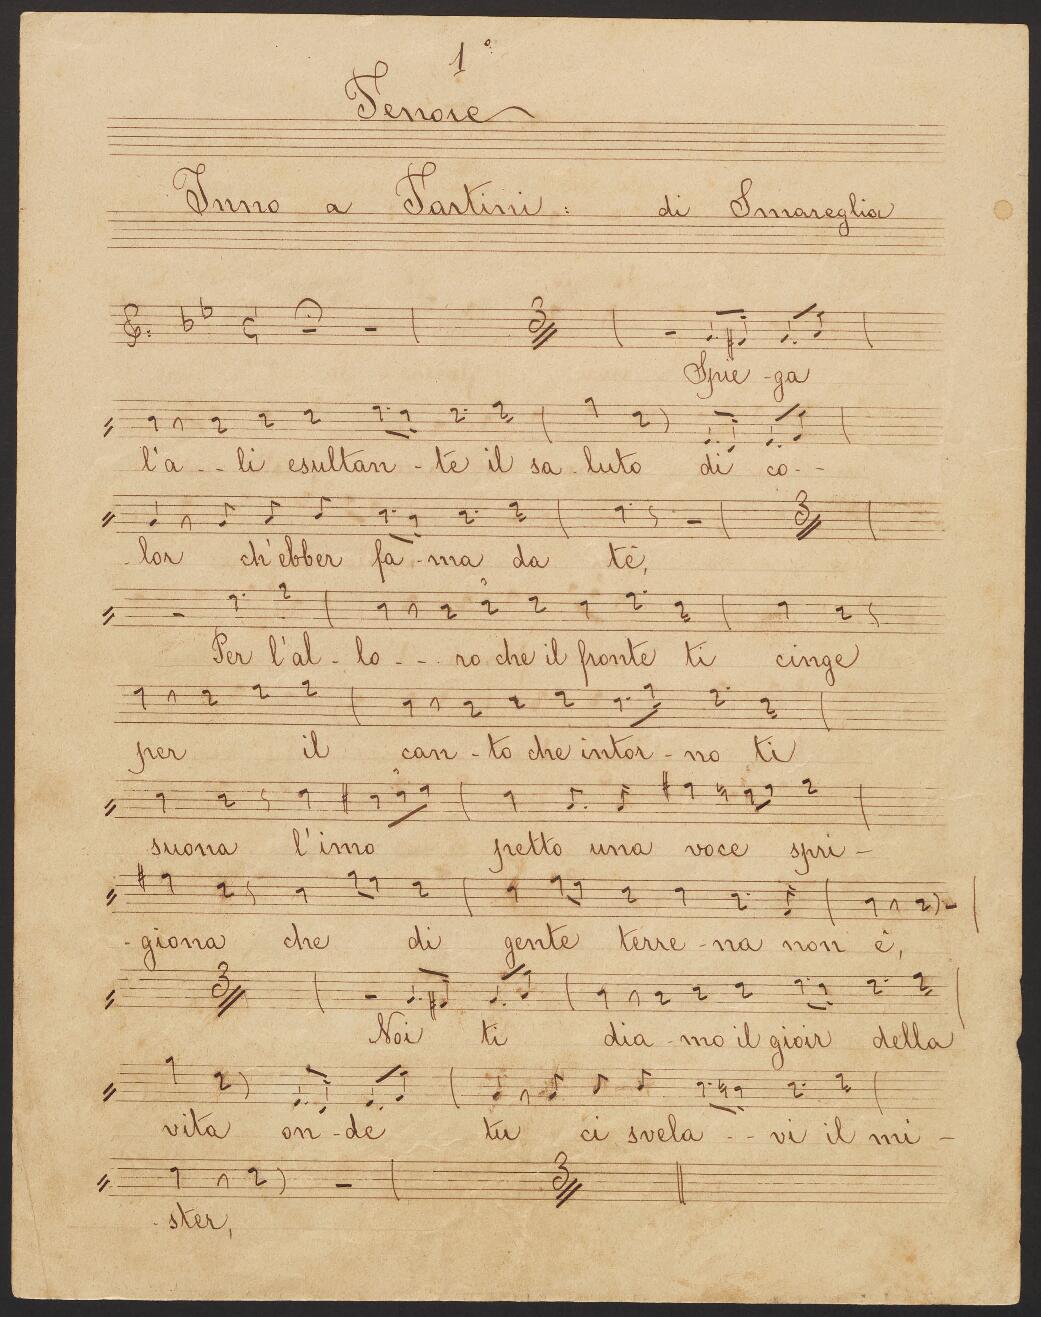 1°
Tenore
Inno a Tartini: di Smareglia
3
Spie-ga
l'a--li esultan-te il sa-luto di co--
-lor ch'ebber fa-ma da tè,
3
Per l'al-lo---ro che il fronte ti cinge
per il can-to che intor-no ti
suona l'imo petto una voce spri-
-giona che di gente terre-na non è,
3
Noi ti dia-mo il gioir della
vita on-de tu ci svela--vi il mi-
3
-ster,